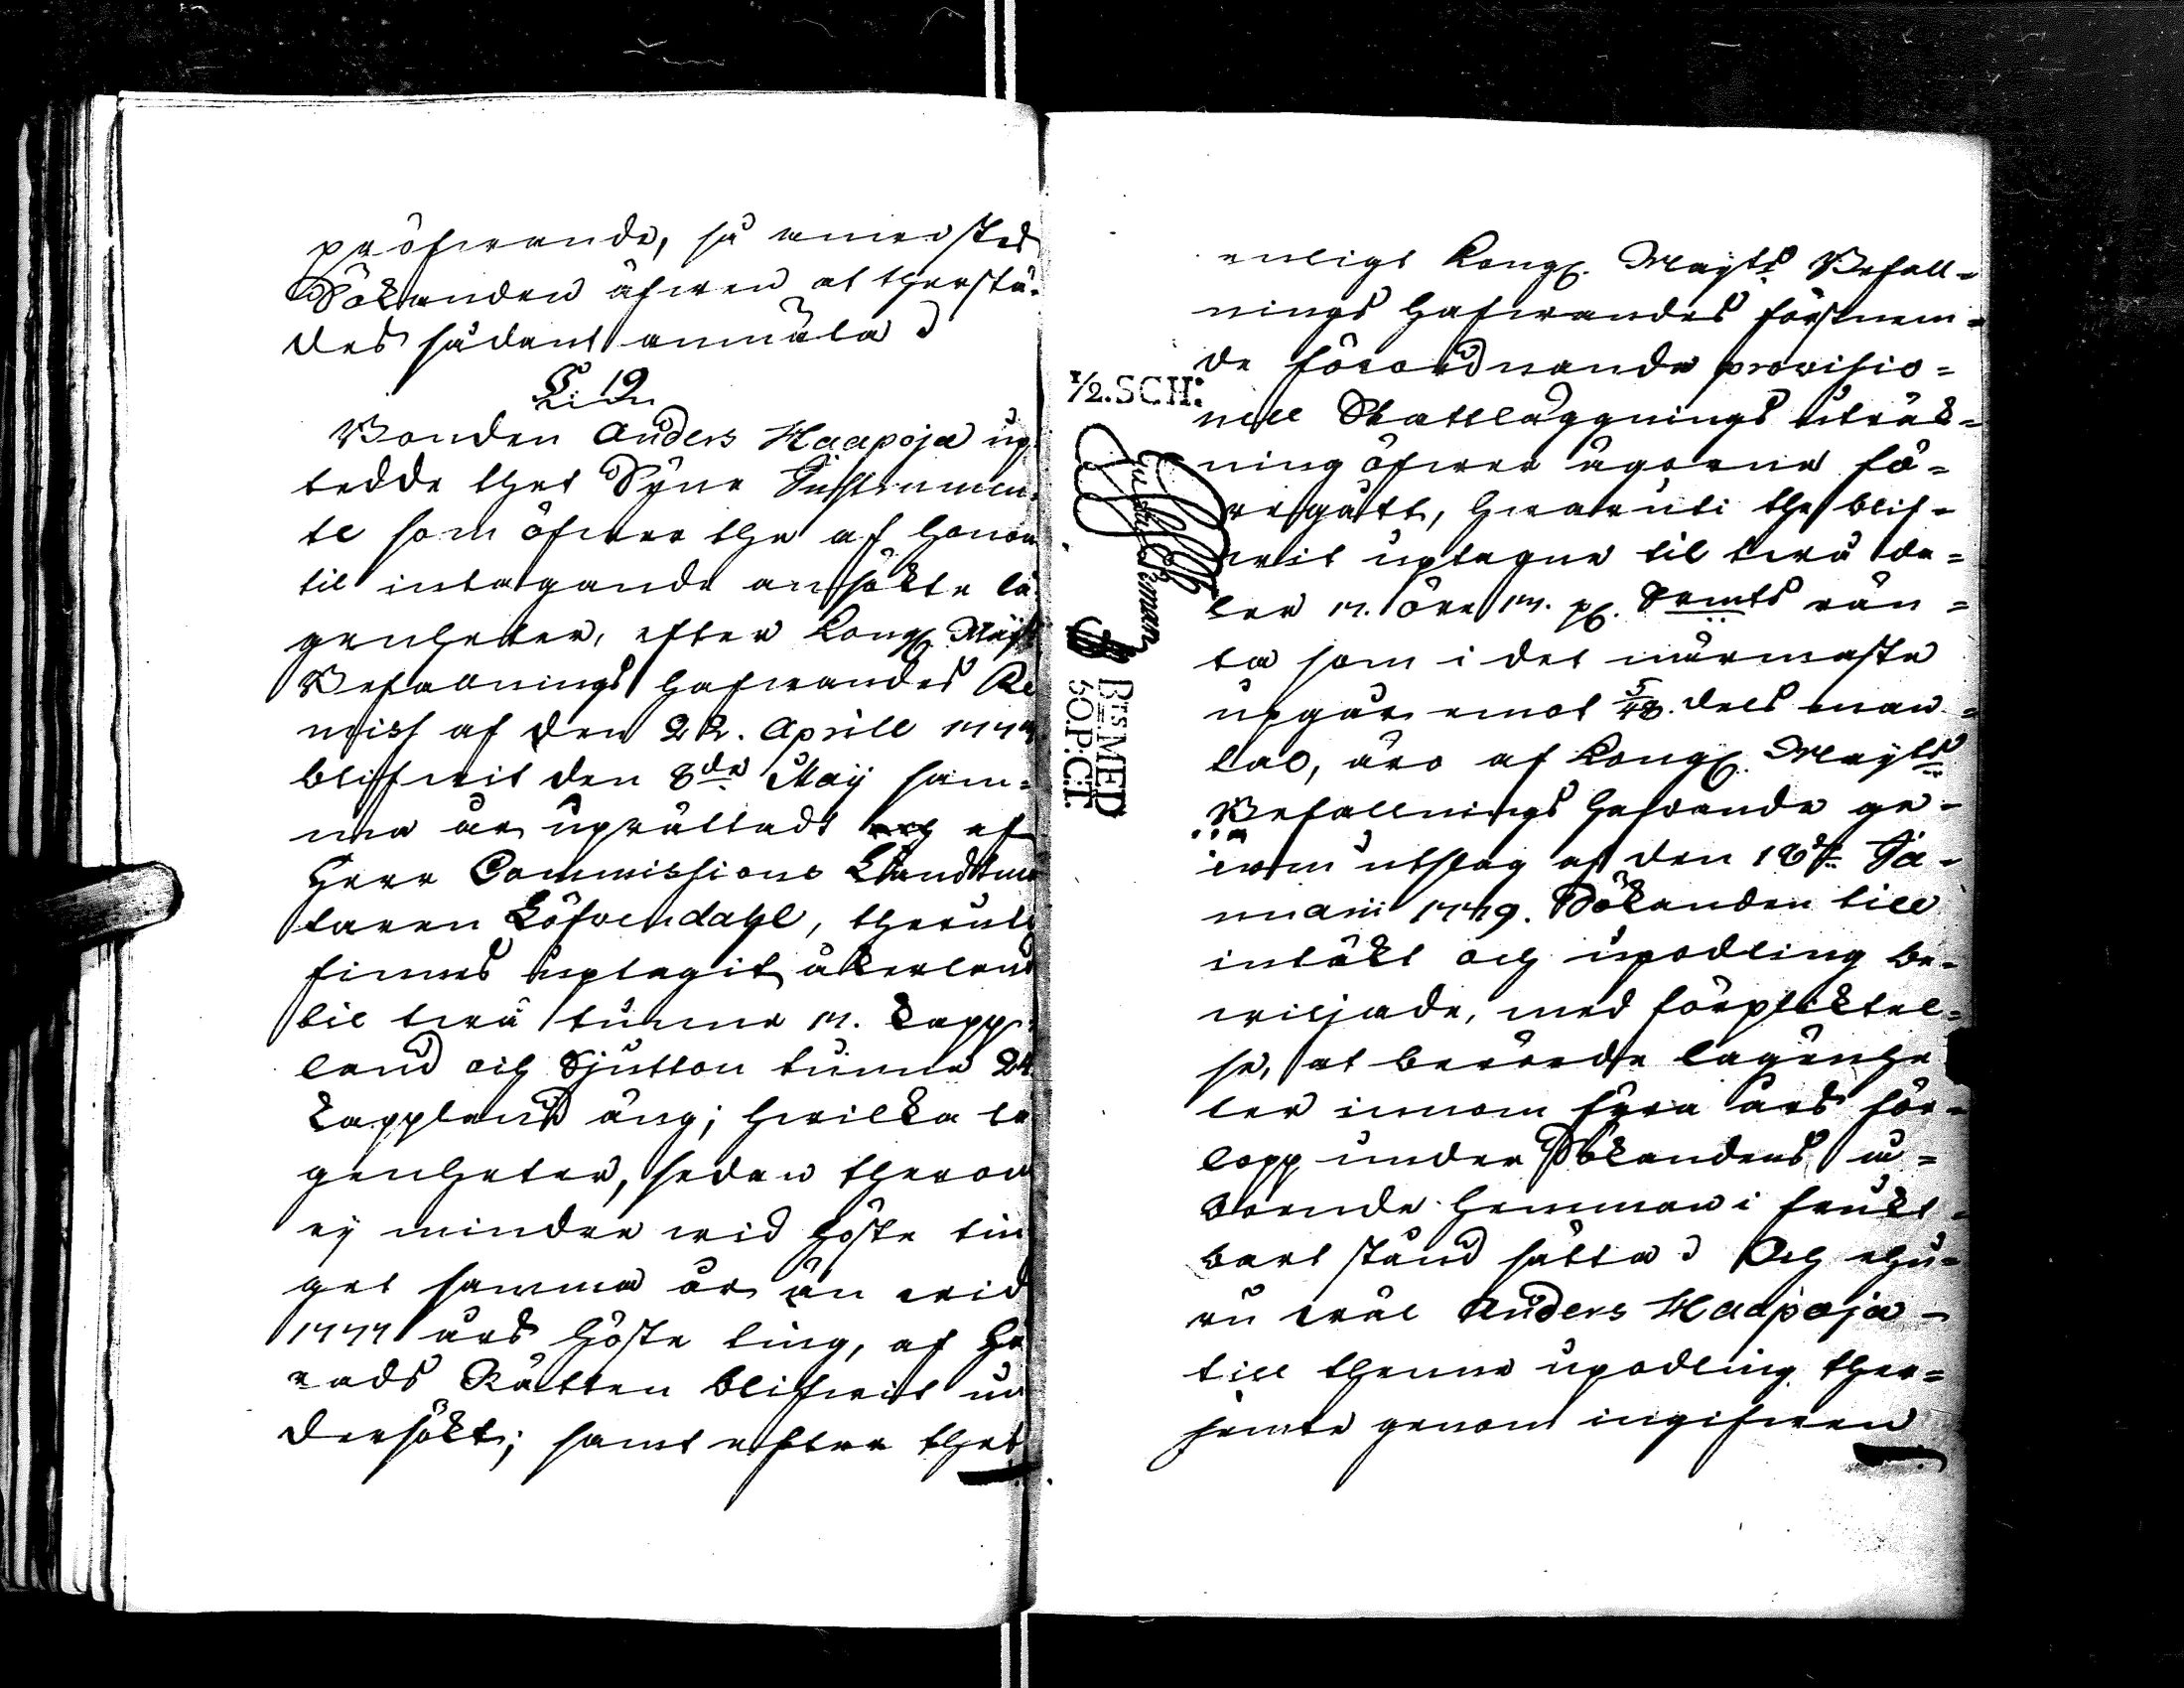 pröfwande, så anwistes
Sökanden äfwen at therstä-
des sådant anmäla
§. 19.
Bonden Anders Haapoja up
tedde thet Syne Instrumen-
te som öfwer the af honom
til intagande ansökte lä-
genheter, efter Kongl. Mayts
Befallnings Hafwandes Re
miss af den 22. Aprill 1777
blifwit den 8de Maÿ sam-
ma år uprättadt af
Herr Commissions Landtmä
taren Löfvendahl, theruti
finnes uptagit åkerland
til twå tunne 17. kapp-
land och Sjutton tunne 24
kappland äng; hwilka lä
genheter, sedan therom
ej mindre wid höste tin
get samma år än wid
1777 års höste ting, af Hä
rads Rätten blifwit un
dersökt; samt efter thet
enligt Kongl. Mayts Befall-
nings Hafwandes förstnem-
de förordnande provisio-
nell Skattläggnings uträk-
ning öfwer ägorne fö-
regått, hwaruti the blif-
wit uptagne til twå da-
ler 17. öre 17. pg. Srmts rän-
ta som i det närmaste
upgår emot 5/48. dels man-
tal, äro af Kongl. Mayts
Befallnings Hafwande ge-
nom utslag af den 18de Ja-
nuarii 1779. Sökanden till
intäkt och upodling be-
wiljade, med förpliktel-
se, at berörde lägenhe
ter innom fyra års för-
lopp under Sökandens å-
boende hemman i frukt-
bart stånd sätta Och ehu-
ru wäl Anders Haapoja
till thenne upodling ther-
jemte genom ingifwen
1/2. SCH:
Brs MED
5O. P: C:T.